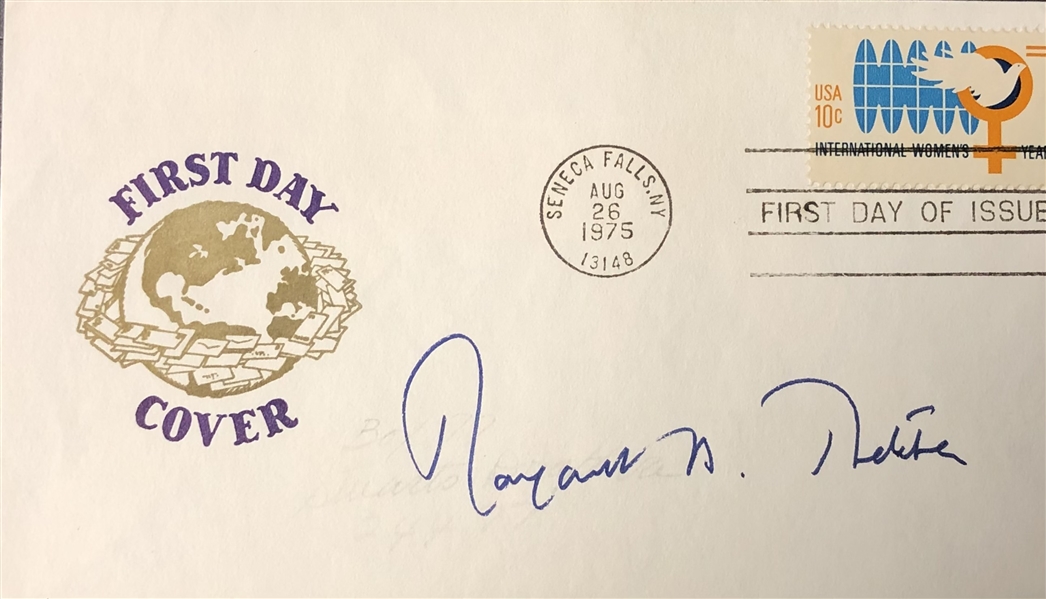 USA
10c
INTERNATIONAL WOMEN'S YEAR
FIRST DAY
COVER
SENECA FALLS, NY
AUG
26
1975
13148
FIRST DAY OF ISSUE
Margaret M. Heckler